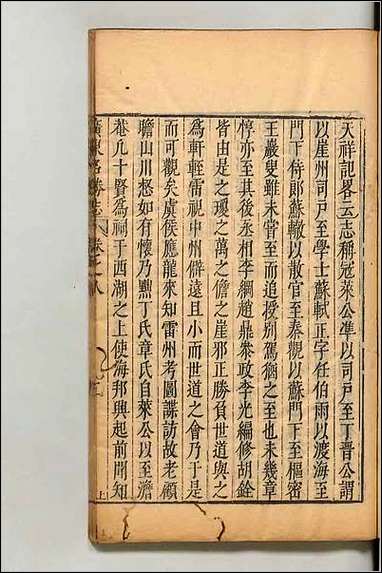 天祥記畧云志稱冦萊公準以司戸至丁晉公謂
以崖州司戸至學士蘇軾正字任伯雨以渡海至
門下侍郎蘇轍以散官至秦觀以蘇門下至樞密
王巖叟雖未甞至而追授別駕猶之至也未幾章
惇亦至其後丞相李綱趙鼎叅政李光編修胡銓
皆由是之瓊之萬之儋之崖邪正勝負世道與之
爲軒輊雷視中州僻遠且小而世道之會乃于是
而可觀矣虞侯應龍來知雷州考圖諜訪故老顧
瞻山川愸如有懷乃黜丁氏章氏自萊公以至澹
菴凡十賢爲祠于西湖之上使海邦興起前聞知
廣東名勝志 卷之八
上